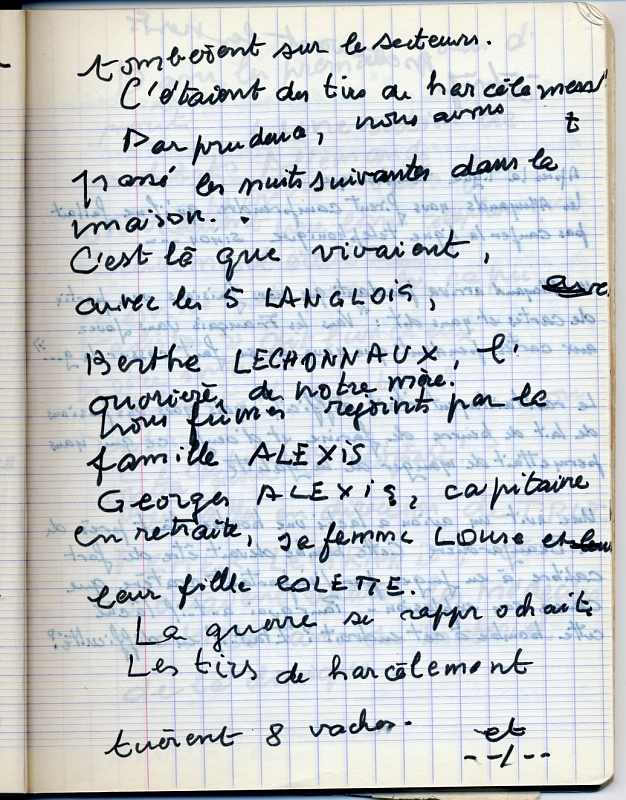 tomboient sur le secteurs.
C'étaient des tirs de harcèlement
Par prudence, nous avons
passé les nuits suivantes dans la
maison.
C'est là que vivaient,
avec les 5 LANGLOIS,
Berthe LECHONNAUX, l'
de notre mère.
nous fûmes rejoints par la
famille ALEXIS
Georges ALEXIS, capitaine
en retraite, sa femme Louise et
leur fille COLETTE.
La guerre se rapprochait
Les tirs de harcèlement
tuèrent 8 vaches. et
--/--